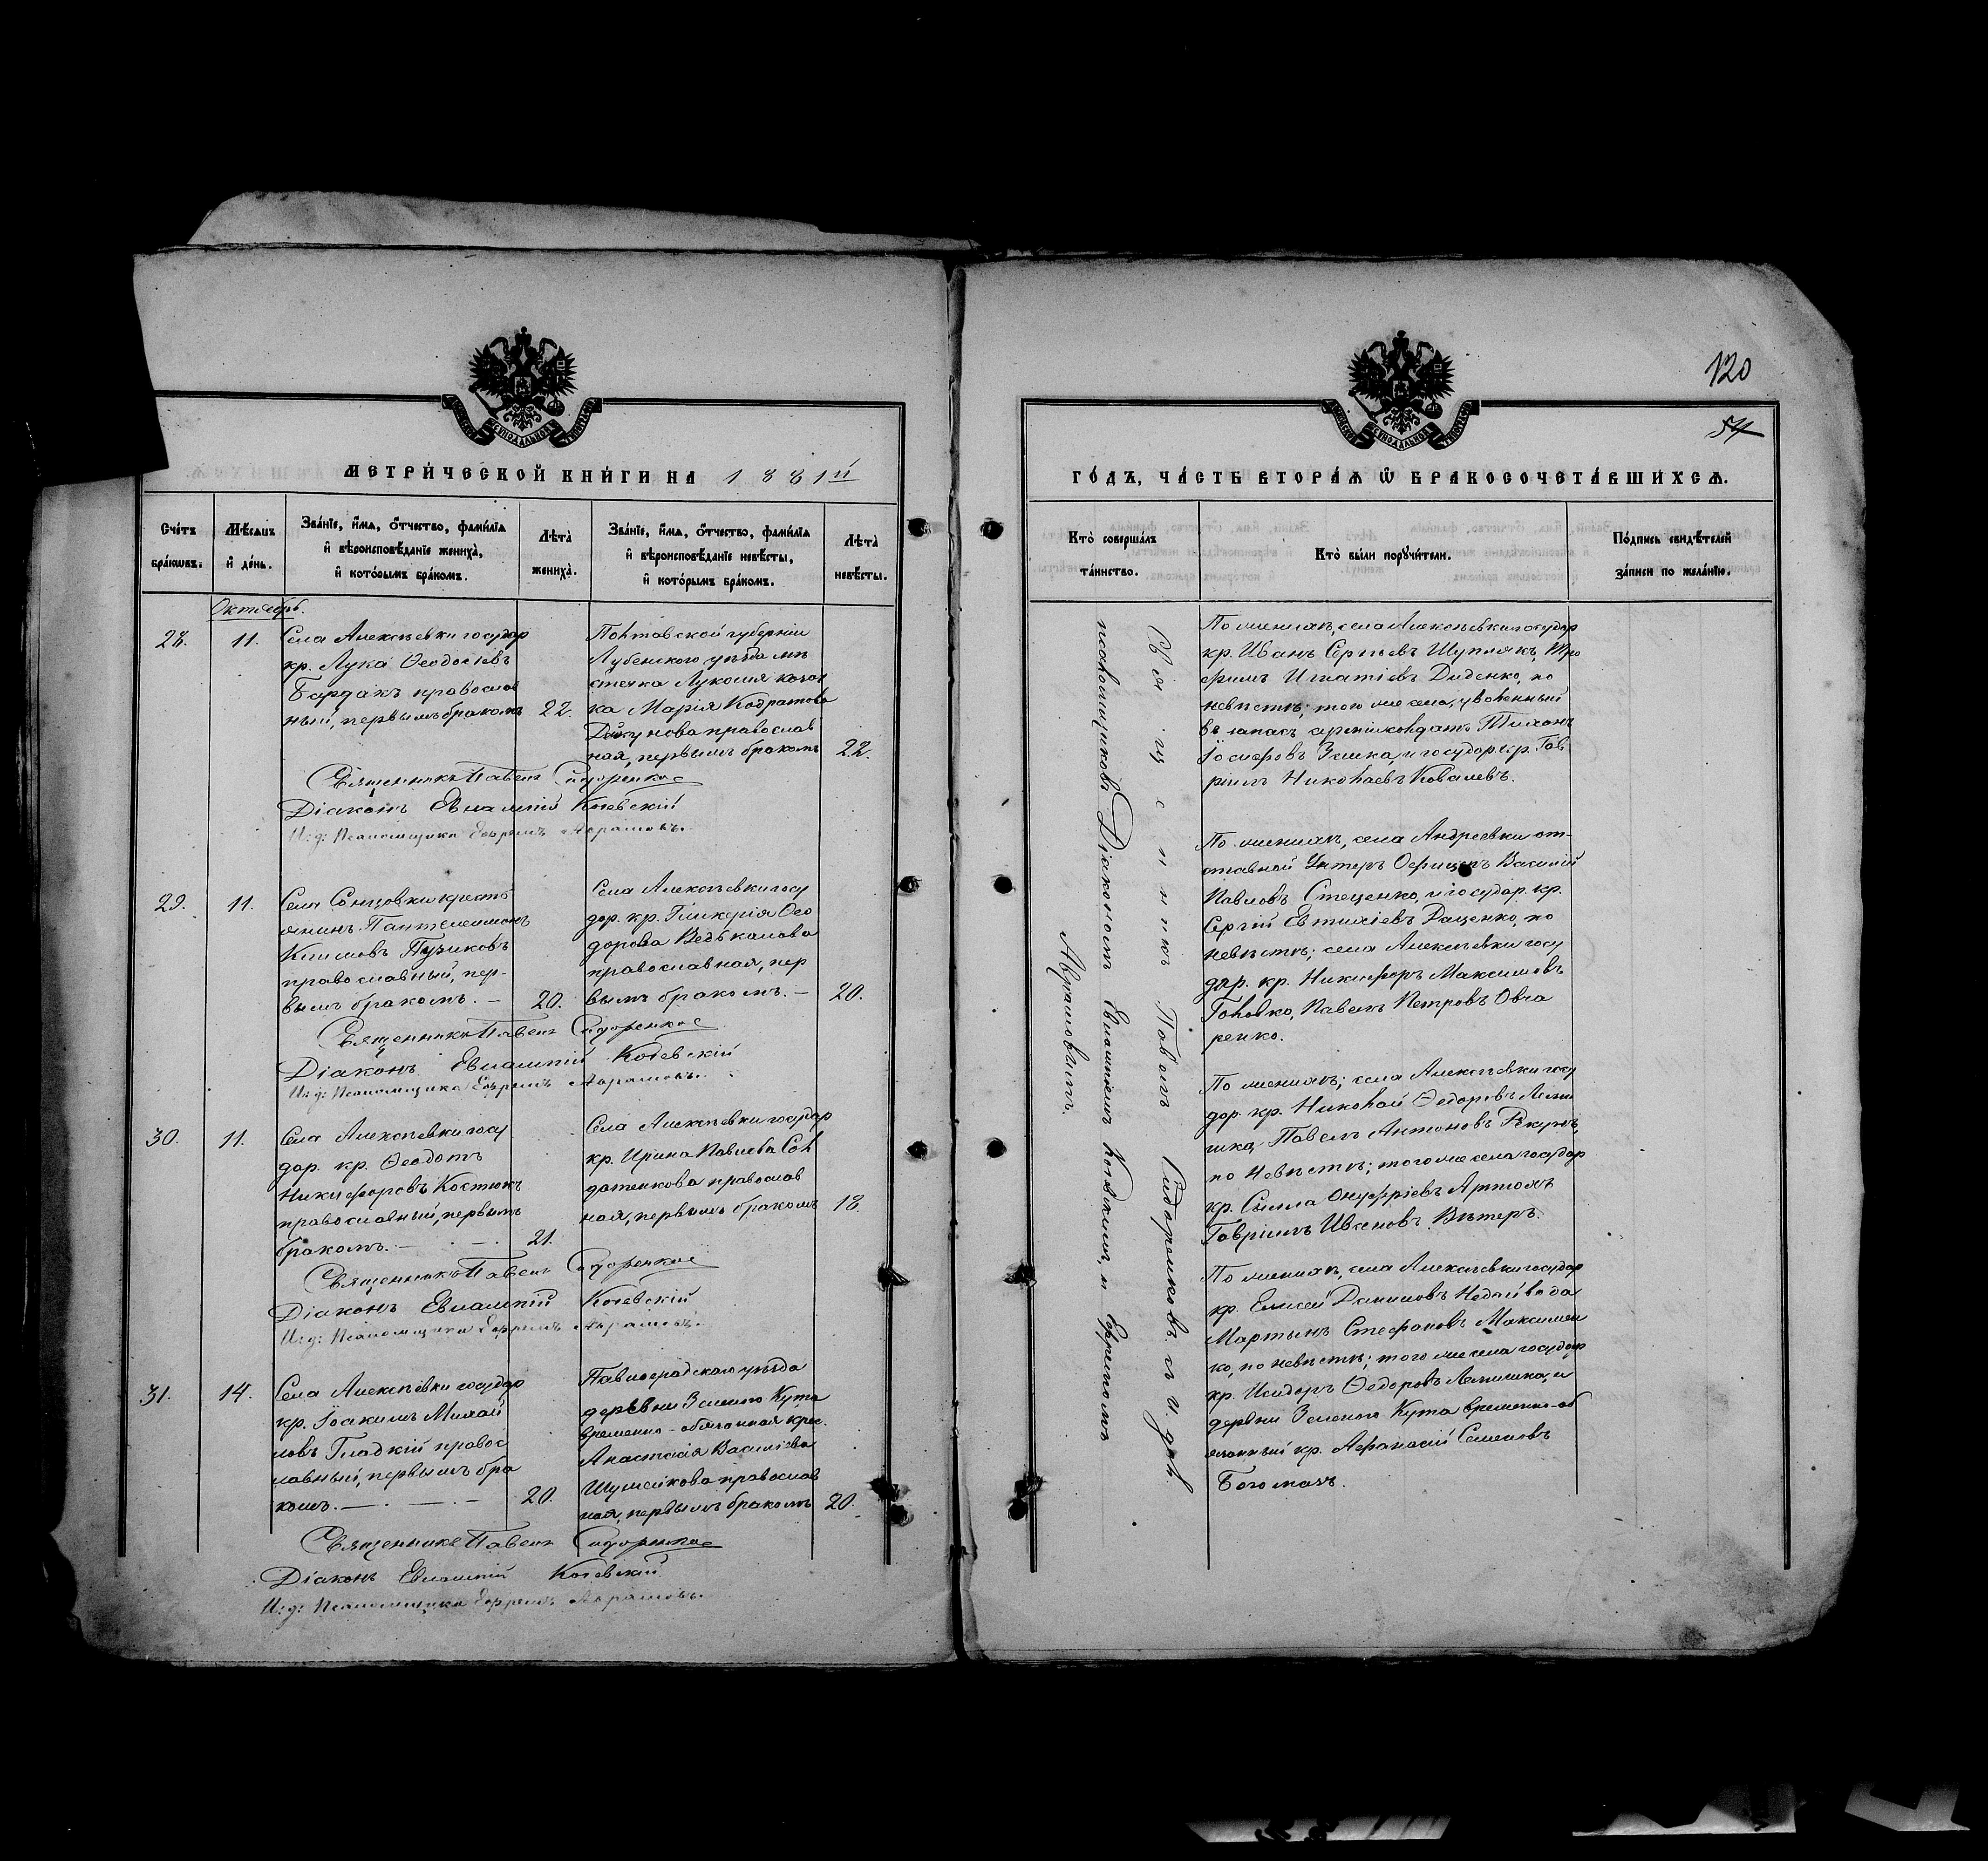 МЕТРИ́ЧЕСКОЙ КНИ́ГИ НА 1881й
Сче́тъ бра́кѡвъ.
Мѣ́сяцъ и҆ де́нь.
Зва́нїе, и҆́мѧ, ѻ҆́тчество, фами́лїѧ
и҆ вѣроисповѣ́данїе жениха̀,
и҆ кото́рымъ бра́комъ.
Лѣта̀ жениха̀.
Зва́нїе, и҆́мѧ, ѻ҆́тчество, фами́лїѧ
и҆ вѣроисповѣ́данїе невѣ́сты,
и҆ кото́рымъ бра́комъ.
Лѣта̀ невѣ́сты.
Октябрь.
28. 11.
Села Алексѣевки государ
кр. Лука Ѳеодосіевъ
Бардакъ православ
ный, первымъ бракомъ
22.
Полтавской губерніи
Лубенского уѣзда мѣ
стечка Лукомя козач
ка Марія Кодратова
православ
ная, первымъ бракомъ
22.
Священникъ Павелъ Сидоренков
Діаконъ Евлампій Котевскій
И: д: Псаломщика Ефремъ Аврамовъ.
29. 11.
Села Сонцовки кресть
янинъ Пантелеимонъ
Климовъ Пузиковъ
православный, пер-
вымъ бракомъ. —
20.
Села Алексѣевки госу
дар. кр. Гликерія Ѳео
дорова Ведькалова
православная, пер
вымъ бракомъ. —
20.
Священникъ Павелъ Сидоренков
Діаконъ Евлампій Котевскій
И: д: Псаломщика Ефремъ Аврамовъ.
30. 11.
Села Алексѣевки госу
дар. кр. Ѳеодотъ
Никифоровъ Костюкъ
православный, первымъ
бракомъ. —
21.
Села Алексѣевки государ
кр. Ирина Павлова Сол
датенкова православ
ная, первымъ бракомъ
18.
Священникъ Павелъ Сидоренков
Діаконъ Евлампій Котевскій
И: д: Псаломщика Ефремъ Аврамовъ.
31. 14.
Села Алексѣевки государ
кр. Іоакимъ Михай
ловъ Гладкій правос
лавный, первымъ бра
комъ. —
20.
Павлоградскаго уѣзда
деревни Зеленого Кута
временно-обязанная крес.
Анастасія Василіева
Шумейкова православ
ная, первымъ бракомъ
20.
Священникъ Павелъ Сидоренков
Діаконъ Евлампій Котевскій
И: д: Псаломщика Ефремъ Аврамовъ.
120
54
ГО́ДЪ, ЧА́СТЬ ВТОРА́Ѧ Ѡ҆ БРАКОСОЧЕТА́ВШИХСѦ.
Кто̀ соверша́лъ та́инство.
Кто̀ бы́ли порꙋчи́тели.
По́дпись свидѣ́телей за́писи по жела́нїю.
Священникъ Павелъ Сидоренковъ съ и. дол.
псаломщиковъ Діакономъ Евлампіемъ Котевскимъ, и Ефремомъ
Аврамовымъ.
По женихѣ, села Алексѣевки государ
кр. Иванъ Сергѣевъ Шуплякъ, Тро
фимъ Игнатіевъ Диденко, по
невѣстѣ; того же села, уволенный
въ запасъ армии солдатъ Тихонъ
Іосифовъ Заика, и государ. кр. Гав
ріилъ Николаевъ Ковалевъ.
По женихѣ, села Андреевки от-
ставной Унтеръ Офицеръ Василій
Павловъ Стеценко, и государ. кр.
Сергій Евтихіевъ Раценко, по
невѣстѣ; села Алексѣевки госу
дар. кр. Никифоръ Максимовъ
Головко, Павелъ Петровъ Овча
ренко.
По женихѣ; села Алексѣевки госу
дар. кр. Николай Ѳедоровъ Леми
шка, Павелъ Антоновъ Рекунъ,
по невѣстѣ; того же села государ
кр. Сысла Онуфріевъ Артюхъ
Гавріилъ Ивановъ Вѣтеръ.
По женихѣ, села Алексѣевки государ
кр. Елисей Даниловъ Недайвода
Мартынъ Стефановъ Максимен
ко, по невѣстѣ; того же села государ
кр. Исидоръ Ѳедоровъ Лемишка, и
деревни Зеленого Кута временно-об
язанный кр. Афанасій Семеновъ
Богомазъ.